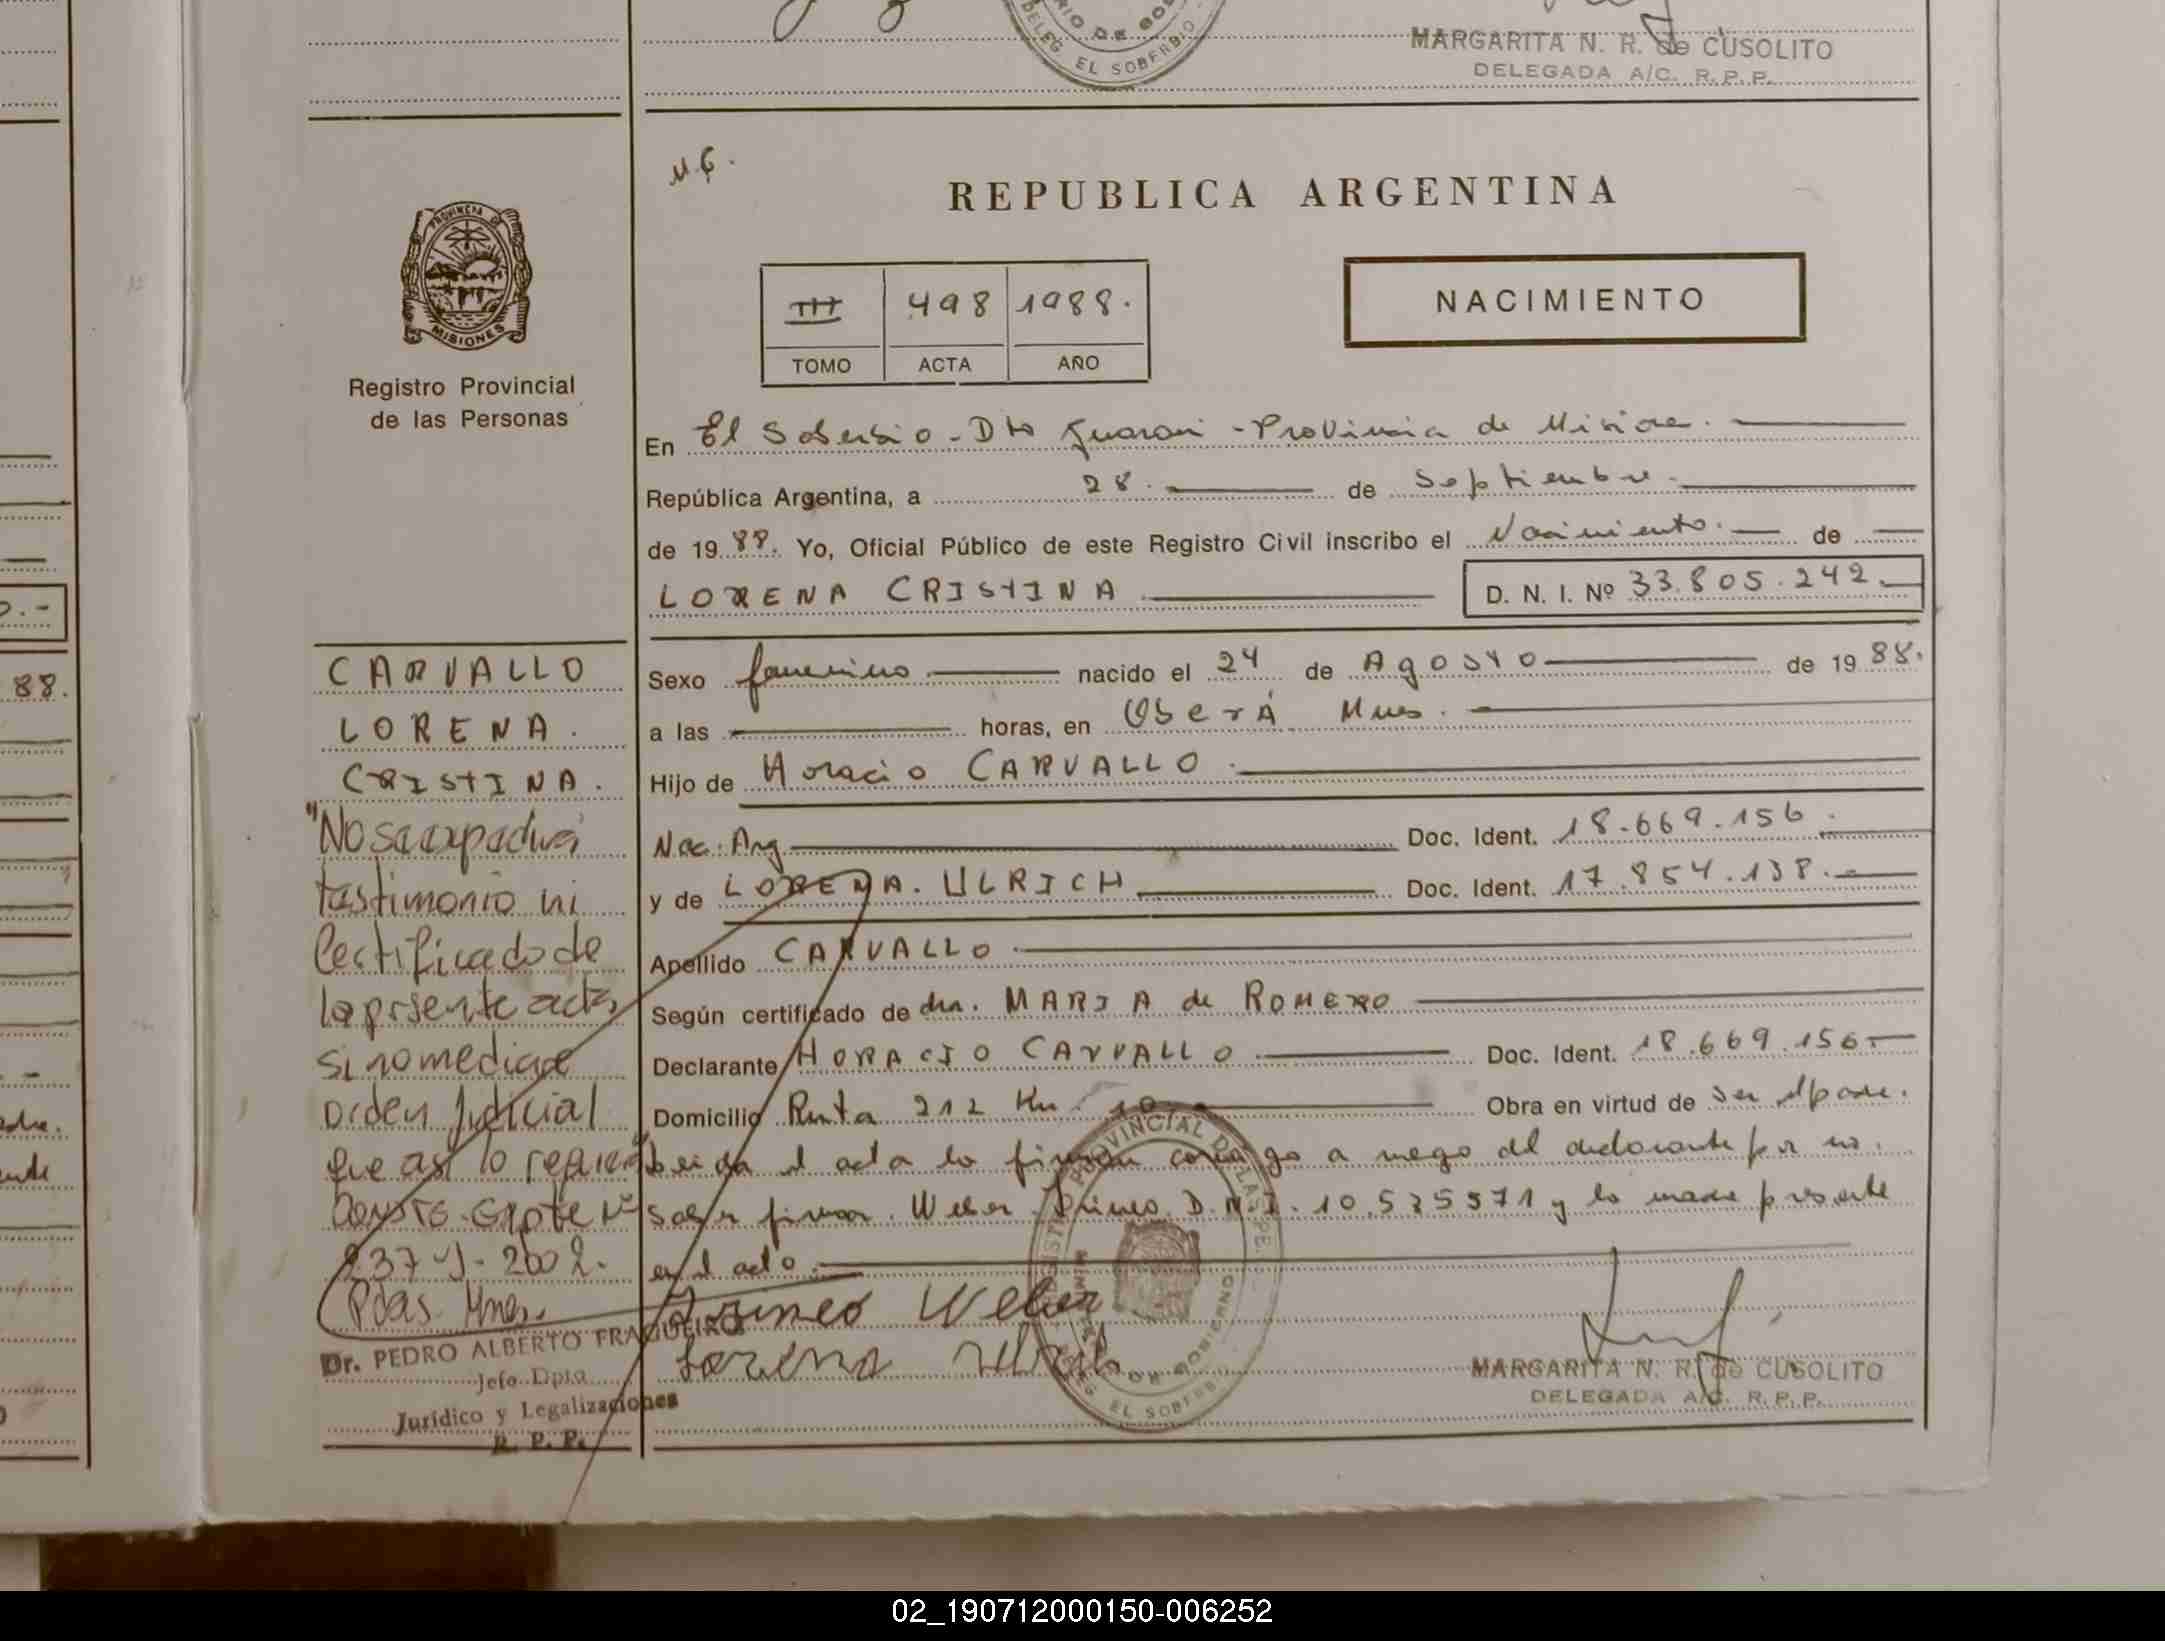 DELEG. EL SOBERBIO
MARGARITA N. R. de CUSOLITO
DELEGADA A/C. R. P. P.
REPUBLICA ARGENTINA
PROVINCIA DE
MISIONES
Registro Provincial
de las Personas
III 498 1988.
TOMO ACTA AÑO
NACIMIENTO
En El Soberbio - Dto Guarani - Provincia de Misiones.
República Argentina, a 28. de Septiembre.
de 1988. Yo, Oficial Público de este Registro Civil inscribo el Nacimiento. de
LORENA CRISTINA D. N. I. Nº 33.805.242.
Sexo femenino nacido el 24 de Agosto de 1988.
a las horas, en Oberá Mnes.
Hijo de Horacio CARVALLO.
Nac. Arg Doc. Ident. 18.669.156.
y de LORENA. ULRICH Doc. Ident. 17.854.138.
Apellido CARVALLO
Según certificado de dra. MARIA de ROMERO
Declarante HORACIO CARVALLO Doc. Ident. 18.669.156
Domicilio Ruta 212 Km. 10 Obra en virtud de ser el padre.
Leida el acta la firman conmigo a ruego del declarante por no
saber firmar. Weber D.N.I. 10.535371 y la madre presente
en el acto.
Weber
Lorena
MARGARITA N. R. de CUSOLITO
DELEGADA A/C. R. P. P.
CARVALLO
LORENA.
CRISTINA.
"No se expedirá
testimonio ni
Certificado de
la prsente acta
si no mediare
orden Judicial
que así lo
837-J-2002.
Pdas. Mnes.
Dr. PEDRO ALBERTO FRAQUEIRO
Jefe Dpto
Jurídico y Legalizaciones
R. P. P.
88.
02_190712000150-006252